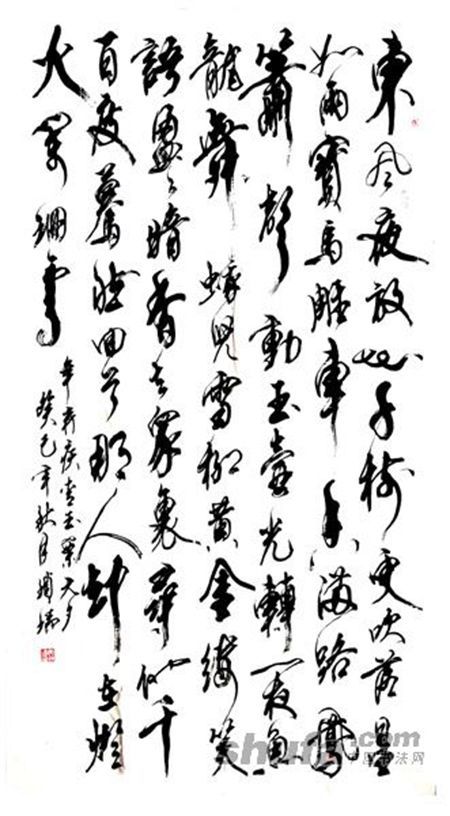 東風夜放花千樹更吹落星
如雨寶馬雕車香滿路鳳
簫聲動玉壺光轉一夜魚
龍舞蛾兒雪柳黃金縷笑
語盈〻暗香去眾裏尋他千
百度驀然回首那人卻在燈
火闌珊處
辛弃疾青玉案元夕
癸巳年秋月
shufa.com
中国书法网